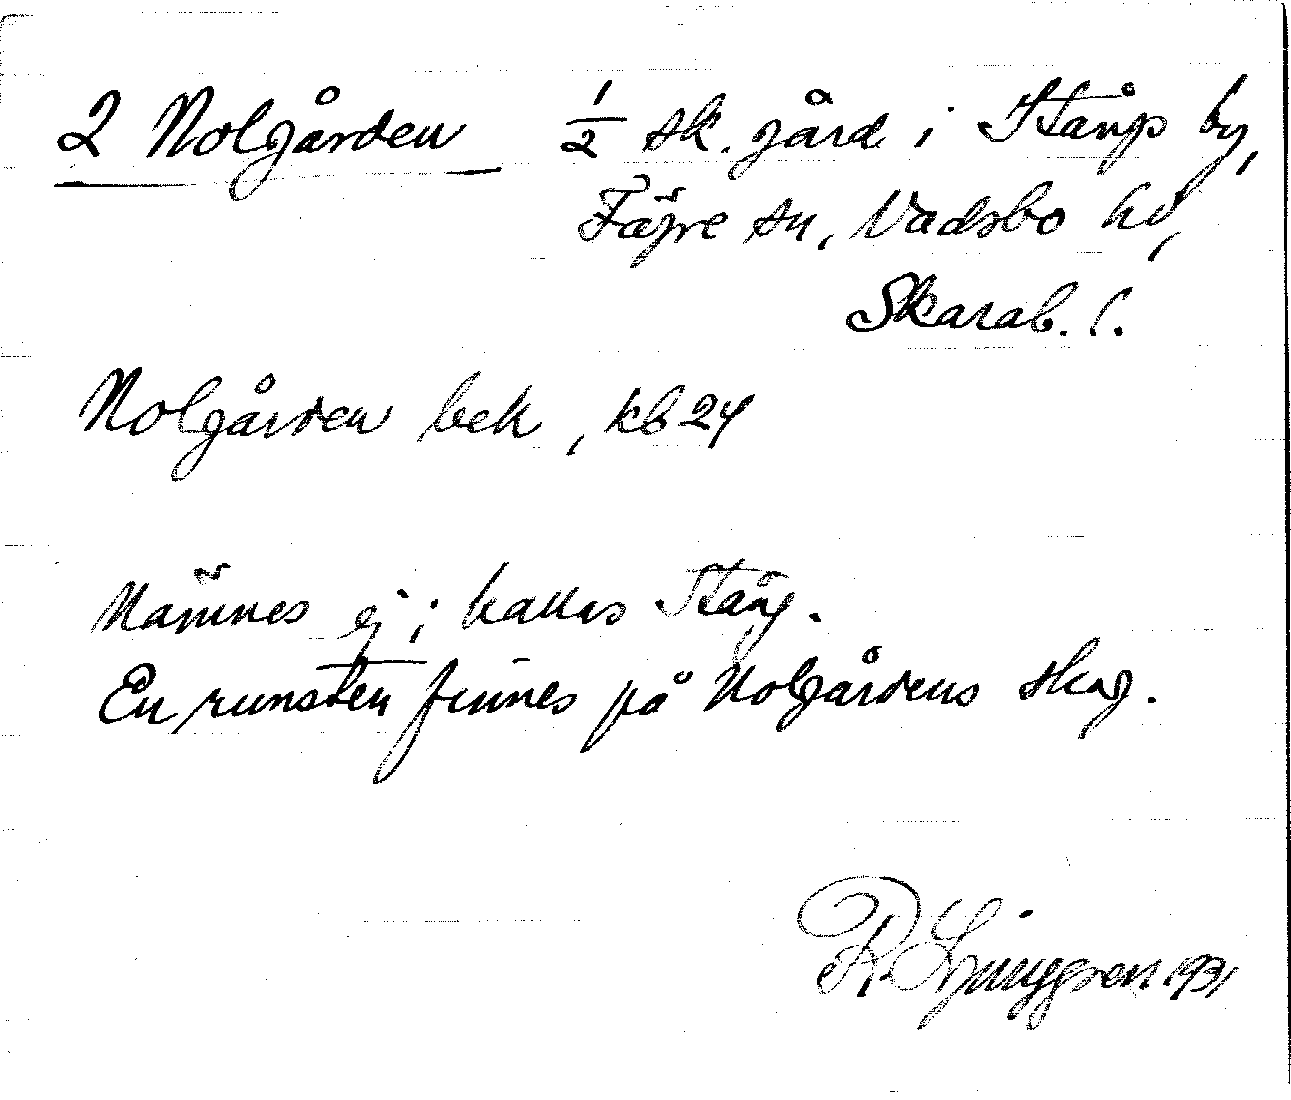 2 Nolgården 1/2 sk. gård i Stångs by,
Fägre sn, Vadsbo hd,
Skarab. l.
Nolgården bek, kb 24
Nämnes ej; kallas Stång.
En runsten finnes på Nolgårdens skog.
R. Ljunggren 1931